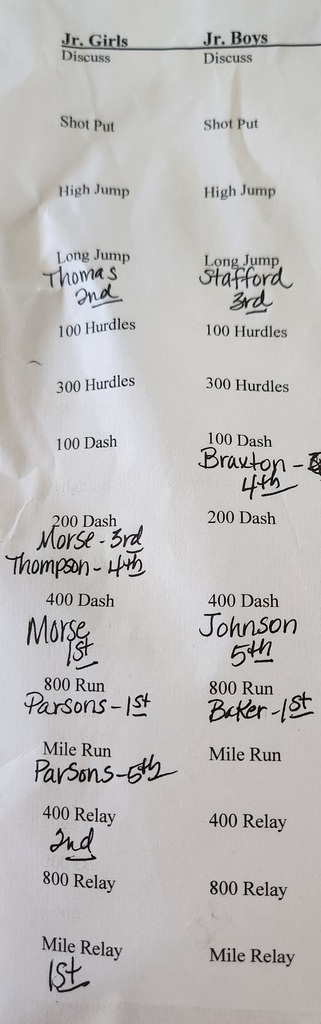 Jr. Girls Jr. Boys
Discuss Discuss
Shot Put Shot Put
High Jump High Jump
Long Jump Long Jump
Thomas Stafford
2nd 3rd
100 Hurdles 100 Hurdles
300 Hurdles 300 Hurdles
100 Dash 100 Dash
Braxton -
4th
200 Dash 200 Dash
Morse - 3rd
Thompson - 4th
400 Dash 400 Dash
Morse Johnson
1st 5th
800 Run 800 Run
Parsons - 1st Baker - 1st
Mile Run Mile Run
Parsons - 5th
400 Relay 400 Relay
2nd
800 Relay 800 Relay
Mile Relay Mile Relay
1st